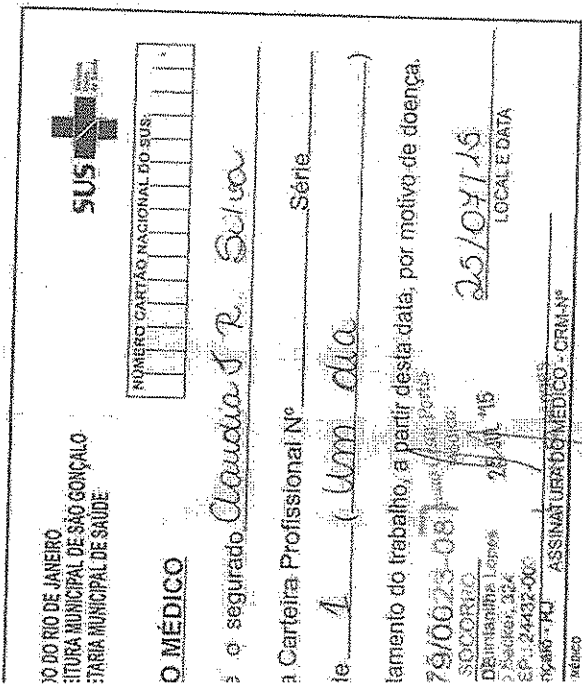 DO DO RIO DE JANEIRO
EITURA MUNICIPAL DE SÃO GONÇALO
ETARIA MUNICIPAL DE SAÚDE
SUS
NÚMERO CARTÃO NACIONAL DO SUS
O MÉDICO
e o segurado Claudia J R. Silva
a Carteira Profissional Nº Série
de 1 ( um dia )
lamento do trabalho, a partir desta data, por motivo de doença.
79/0023-08
SOCORRO
324
EP: 24432-000
nçalo - RJ
'15
25/07/15
LOCAL E DATA
ASSINATURA DO MÉDICO - CRM-Nº
MÉDICO